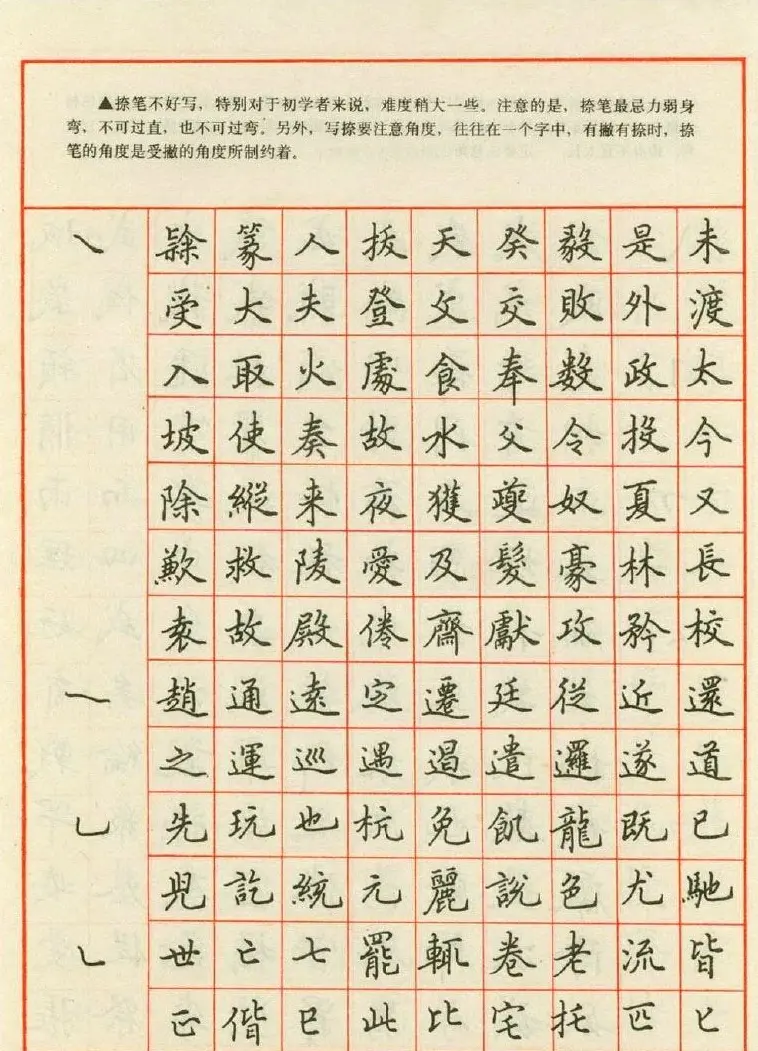 ▲捺笔不好写，特别对于初学者来说，难度稍大一些。注意的是，捺笔最忌力弱身
弯，不可过直，也不可过弯。另外，写捺要注意角度，往往在一个字中，有撇有捺时，捺
笔的角度是受撇的角度所制约着。
㇏ 篆 人 拔 天 癸 毅 是 未
受 大 夫 登 父 交 敗 外 渡
入 取 火 處 食 奉 数 政 太
坡 使 奏 故 水 父 令 投 今
除 縱 来 夜 獲 夔 奴 夏 又
歉 救 陵 愛 及 髮 豪 林 長
故 殿 倦 齋 獻 攻 矜 校
趙 通 遠 定 遷 廷 從 近 還
之 運 巡 遇 遏 遣 邏 遂 道
乚 先 玩 也 杭 免 飢 龍 既 已
兕 訖 統 元 麗 說 色 尤 馳
世 亡 七 罷 輒 卷 老 流 皆
偕 巳 此 比 宅 托 匹 匕